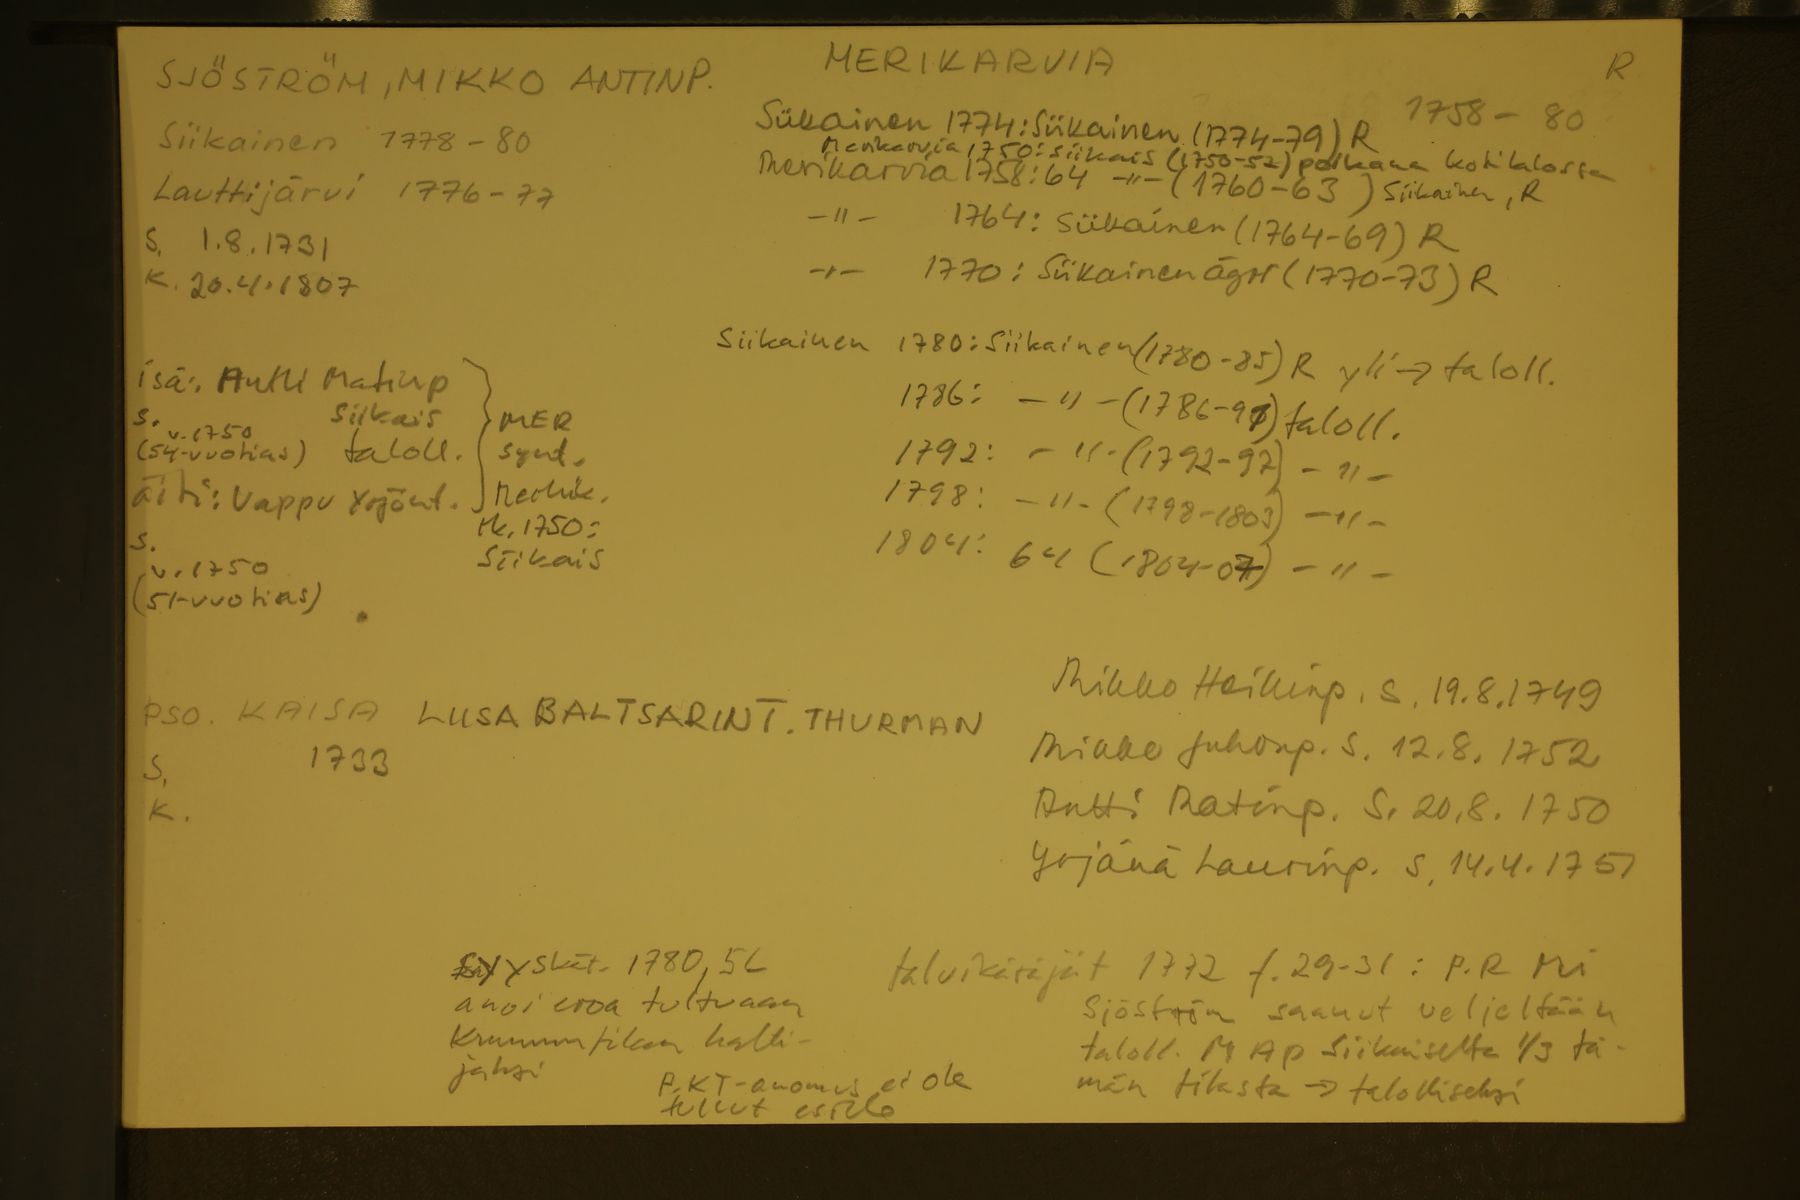 SJÖSTRÖM, MIKKO ANTINP.
MERIKARVIA
R
1758 - 80
Siikainen 1778 - 80
Lauttijärvi 1776 - 77
S. 1.8.1731
K. 20.4.1807
Siikainen 1774: Siikainen (1774-79) R
Merikarvia 1750: Siikais (1750-52) poikana kotitalossa
Merikarvia 1758: 64 -"- (1760-63) Siikainen, R
-"- 1764: Siikainen (1764-69) R
-"- 1770: Siikainen ägor (1770-73) R
Siikainen 1780: Siikainen (1780-85) R yli → taloll.
1786: -"- (1786-91) taloll.
1792: -"- (1792-97) -"-
1798: -"- (1798-1803) -"-
1804: 64 (1804-07) -"-
isä: Antti Matinp
Siikais
taloll.
S. v. 1750
(54-vuotias)
äiti: Vappu Yrjönt.
S.
v. 1750
(51-vuotias)
MER
synt.
Merik.
rk. 1750:
Siikais
PSO. KAISA LIISA BALTSARINT. THURMAN
S. 1733
K.
Mikko Heikinp. S. 19.8.1749
Mikko Juhonp. S. 12.8.1752
Antti Matinp. S. 20.8.1750
Yrjänä Laurinp. S. 14.4.1751
syyskät. 1780, 56
anoi eroa tultuaan
kruununtilan halti-
jaksi
P.KT-anomus ei ole
tullut esille
talvikäräjät 1772 f. 29-31: P.R Mi
Sjöström saanut veljeltään
taloll. M Ap Siikaiselta 1/3 tä-
män tilasta → talolliseksi